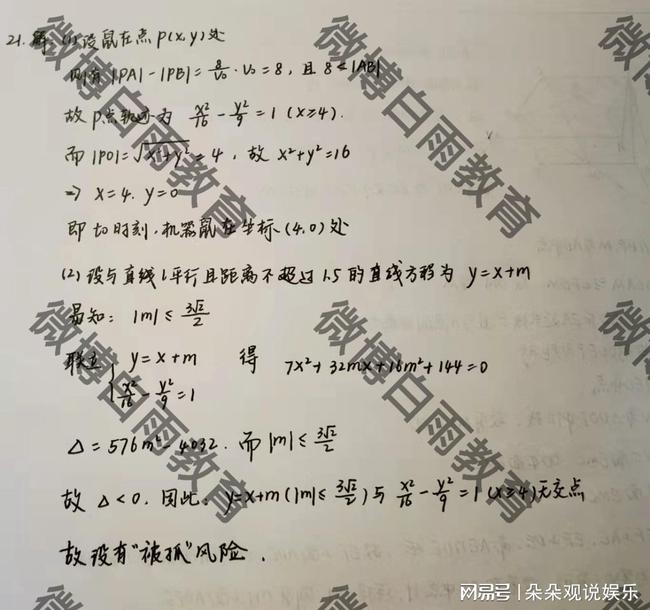 21. 解 (1) 设鼠在点 P(x, y) 处
则有 |PA| - |PB| = 8/V₀ · V₀ = 8, 且 8 < |AB|
故 P点轨迹为 x²/16 - y²/9 = 1 (x≥4).
而 |PO| = √x²+y² = 4, 故 x²+y²=16
⇒ x=4. y=0
即 t₀ 时刻, 机器鼠在坐标 (4,0) 处
(2) 设与直线 l 平行且距离不超过 1.5 的直线方程为 y=x+m
易知: |m| ≤ 3√2/2
联立 { y=x+m 得 7x²+32mx+16m²+144=0
x²/16 - y²/9 = 1
Δ = 576m² - 4032. 而 |m| ≤ 3√2/2
故 Δ<0. 因此. y=x+m (|m| ≤ 3√2/2) 与 x²/16 - y²/9 = 1 (x≥4) 无交点
故没有"被抓"风险.
微博白雨教育
微博白雨教育
微博白雨教育
微博白雨教育
网易号 | 朵朵观说娱乐